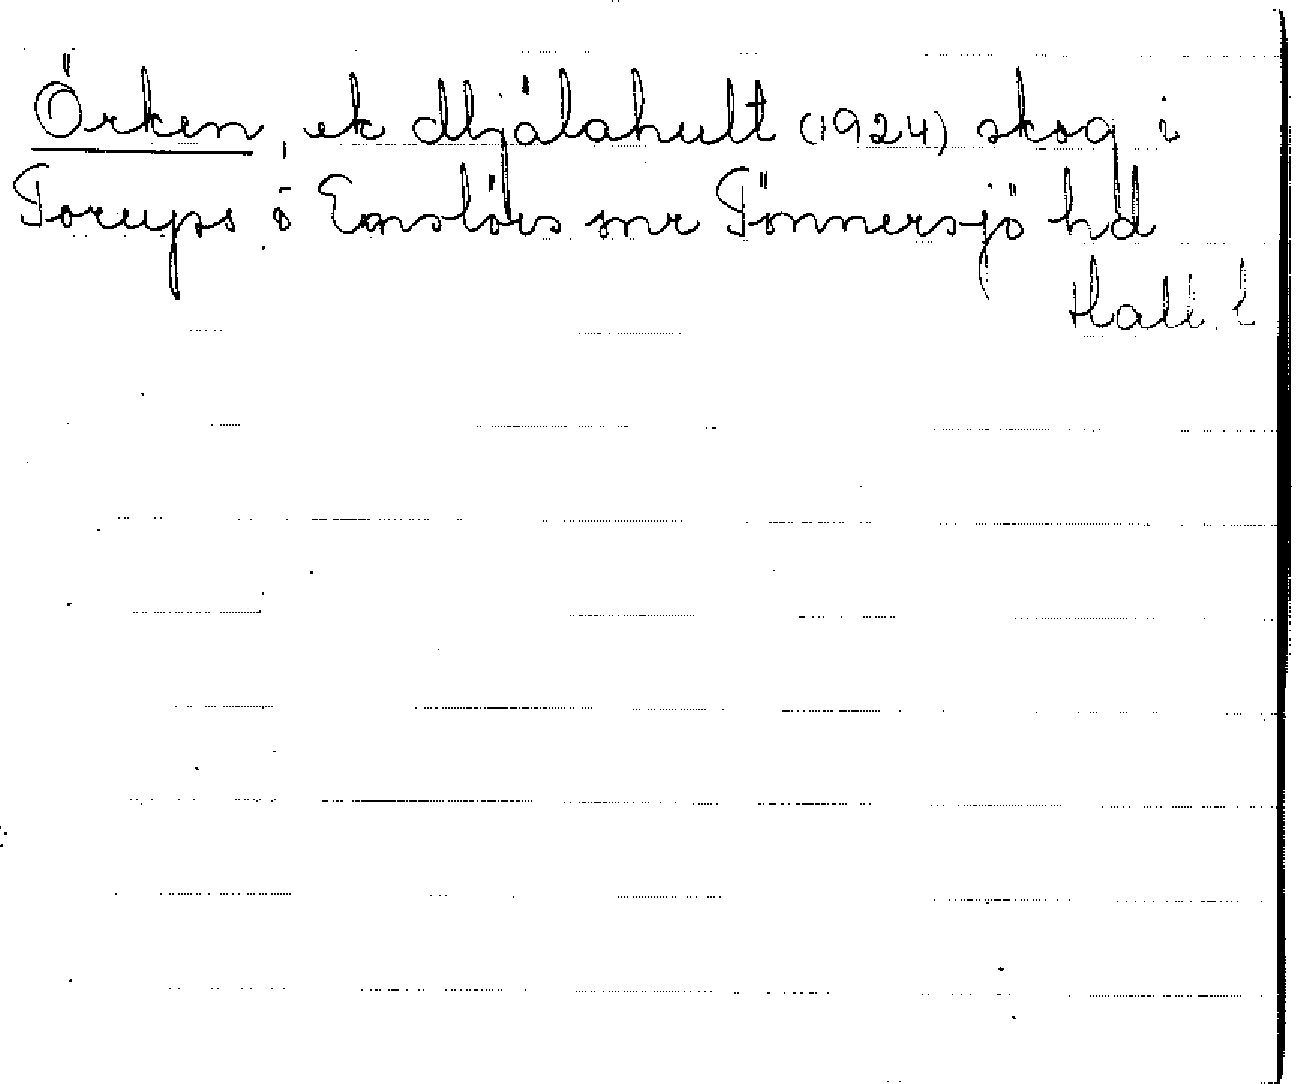 Örken, ek Mjälahult (1924) skog i
Torups o Enslövs snr Tönnersjö hd
Hall. l